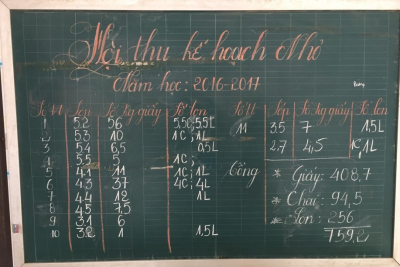 Nơi thu kế hoạch Nhỏ
Năm học: 2016-2017
Số TT Lớp Số Kg giấy Số lon Số TT Lớp Số Kg giấy Số lon
1 5.2 56 5,5C; 5,5L 11 3.5 7 1.5L
2 5.3 10 1C; 1L 2.7 4,5 1C, 1L
3 5.4 6.5 0.5L
4 5.5 5 1C; Cộng * Giấy: 408,7
5 4.1 11 1C; 1L * Chai: 94,5
6 4.3 37 4C; 4L * Lon: 256
7 4.4 12 1L 759,2
8 4.5 7,5
9 3.1 6
10 3.2 1 1.5L